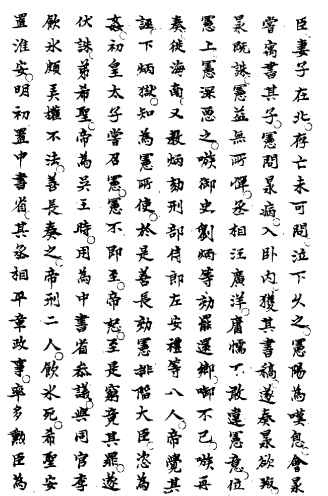 臣妻子在北存亡未可問泣下久之憲陽為嘆息會杲
嘗寓書其子憲問杲病入臥內獲其書稿遂奏杲欲叛
杲既誅憲益無所憚丞相汪廣洋庸懦不敢違憲意位
憲上憲深惡之嗾御史劉炳等劾罷還鄉啣不已嗾再
奏徙海南又教炳劾刑部侍郎左安禮等八人帝覺其
誣下炳獄知為憲所使於是善長劾憲排陷大臣恣為
姦初皇太子嘗召憲憲不即至帝怒至是窮竟其罪遂
伏誅弟希聖帝為吳王時用為中書省叅議與同官李
飲冰頗弄權不法善長奏之帝刑二人飲冰死希聖安
置淮安明初置中書省其丞相平章政事率多勲臣為